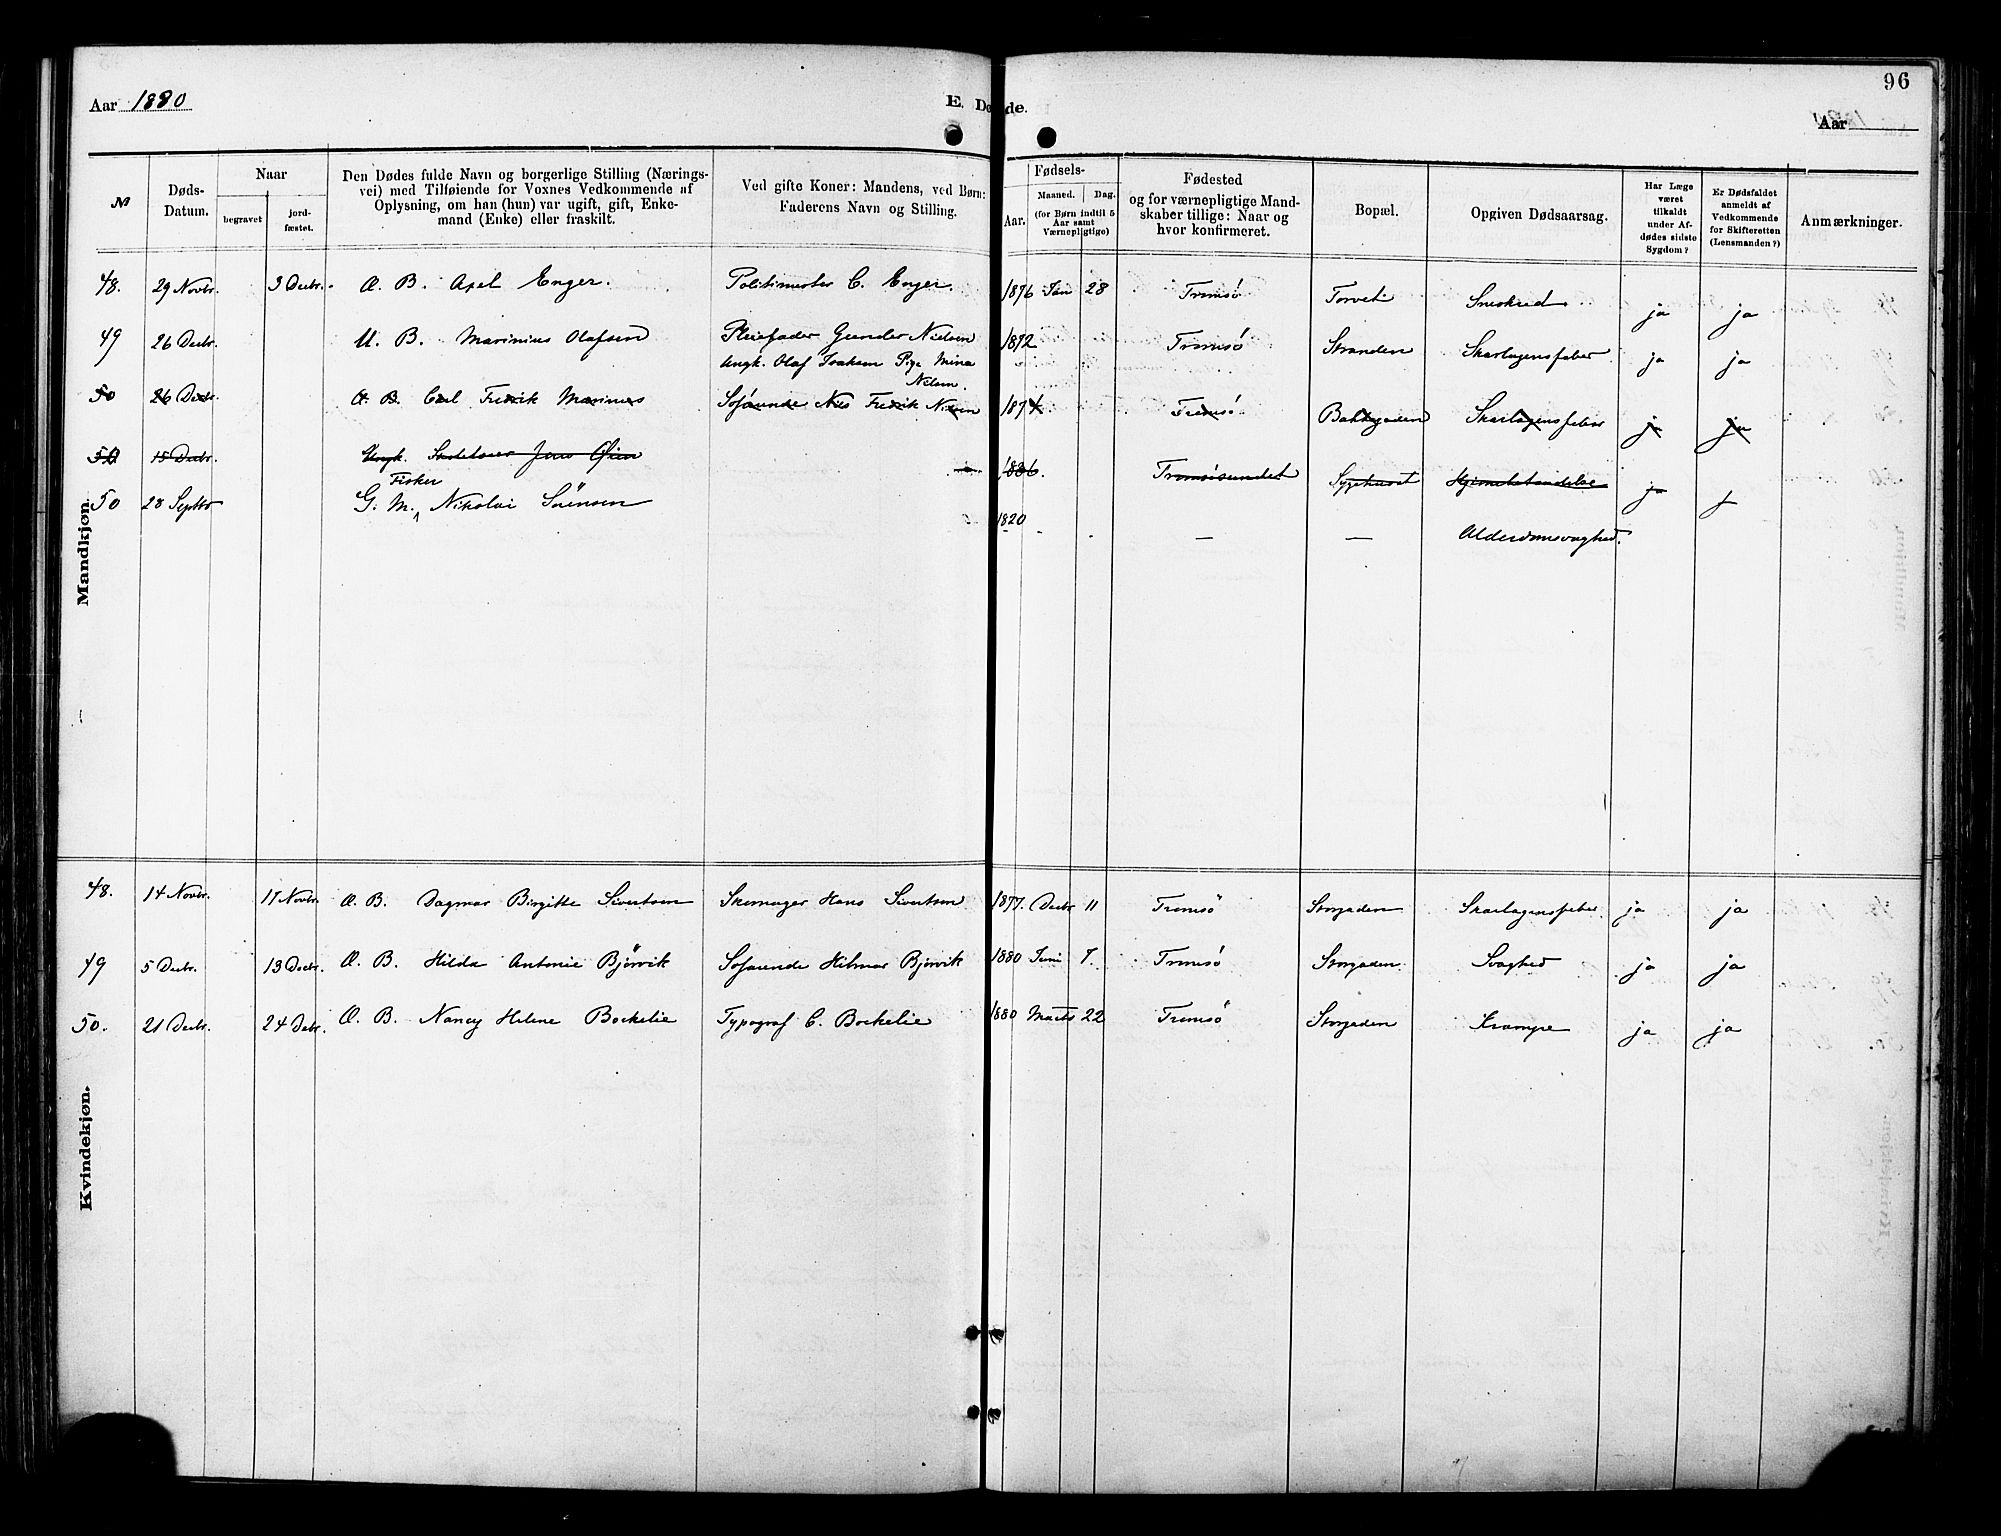 Aar 1880
E. Døde.
96
Aar
№
Døds-Datum.
Naar
begravet
jordfæstet.
Den Dødes fulde Navn og borgerlige Stilling (Næringsvei) med Tilføiende for Voxnes Vedkommende af Oplysning, om han (hun) var ugift, gift, Enkemand (Enke) eller fraskilt.
Ved gifte Koner: Mandens, ved Børn: Faderens Navn og Stilling.
Fødsels-
Aar.
Maaned.
Dag.
(for Børn indtil 5 Aar samt Værnepligtige)
Fødested og for værnepligtige Mandskaber tillige: Naar og hvor konfirmeret.
Bopæl.
Opgiven Dødsaarsag.
Har Læge været tilkaldt under Afdødes sidste Sygdom?
Er Dødsfaldet anmeldt af Vedkommende for Skifteretten (Lensmanden?)
Anmærkninger.
Mandkjøn.
48. 29 Novbr. 3 Decbr. Æ. B. Axel Enger. Politimester C. Enger. 1876 Jan 28 Tromsø Torvet Sneskred ja ja
49 26 Decbr. U. B. Marinius Olafsen Pleiefader Gunder Nielsen 1872 Tromsø Stranden Skarlagensfeber ja ja
Ungk. Olaf Joakem Pige Mina
Nilsen.
50 26 Decbr Æ. B. Carl Fredrik Marinius Nils Fredrik Nilsen 1874 Tromsø Bakkegaden Skarlagensfeber ja ja
50 15 Decbr. Ungk. Jens Øien 1836. Tromsøsundet Sygehuset ja j
Fisker
50 28 Septbr G. M. Nikolai Sørensen 1820 - - — — Alderdomsvaghed.
Kvindekjøn.
48. 14 Novbr. 17 Novbr. Æ. B. Dagmar Birgitte Sivertsen Skomager Hans Sivertsen 1877. Decbr 11 Tromsø Storgaden Skarlagensfeber ja ja
49 5 Decbr. 13 Decbr. Æ. B. Hilda Antonie Bjørvik Hilmar Bjørvik 1880 Juni 7. Tromsø Storgaden Svaghed ja ja
50. 21 Decbr. 24 Decbr. Æ. B. Nancy Helene Bockelie Typograf C. Bockelie 1880 Marts 22 Tromsø Storgaden Krampe ja ja